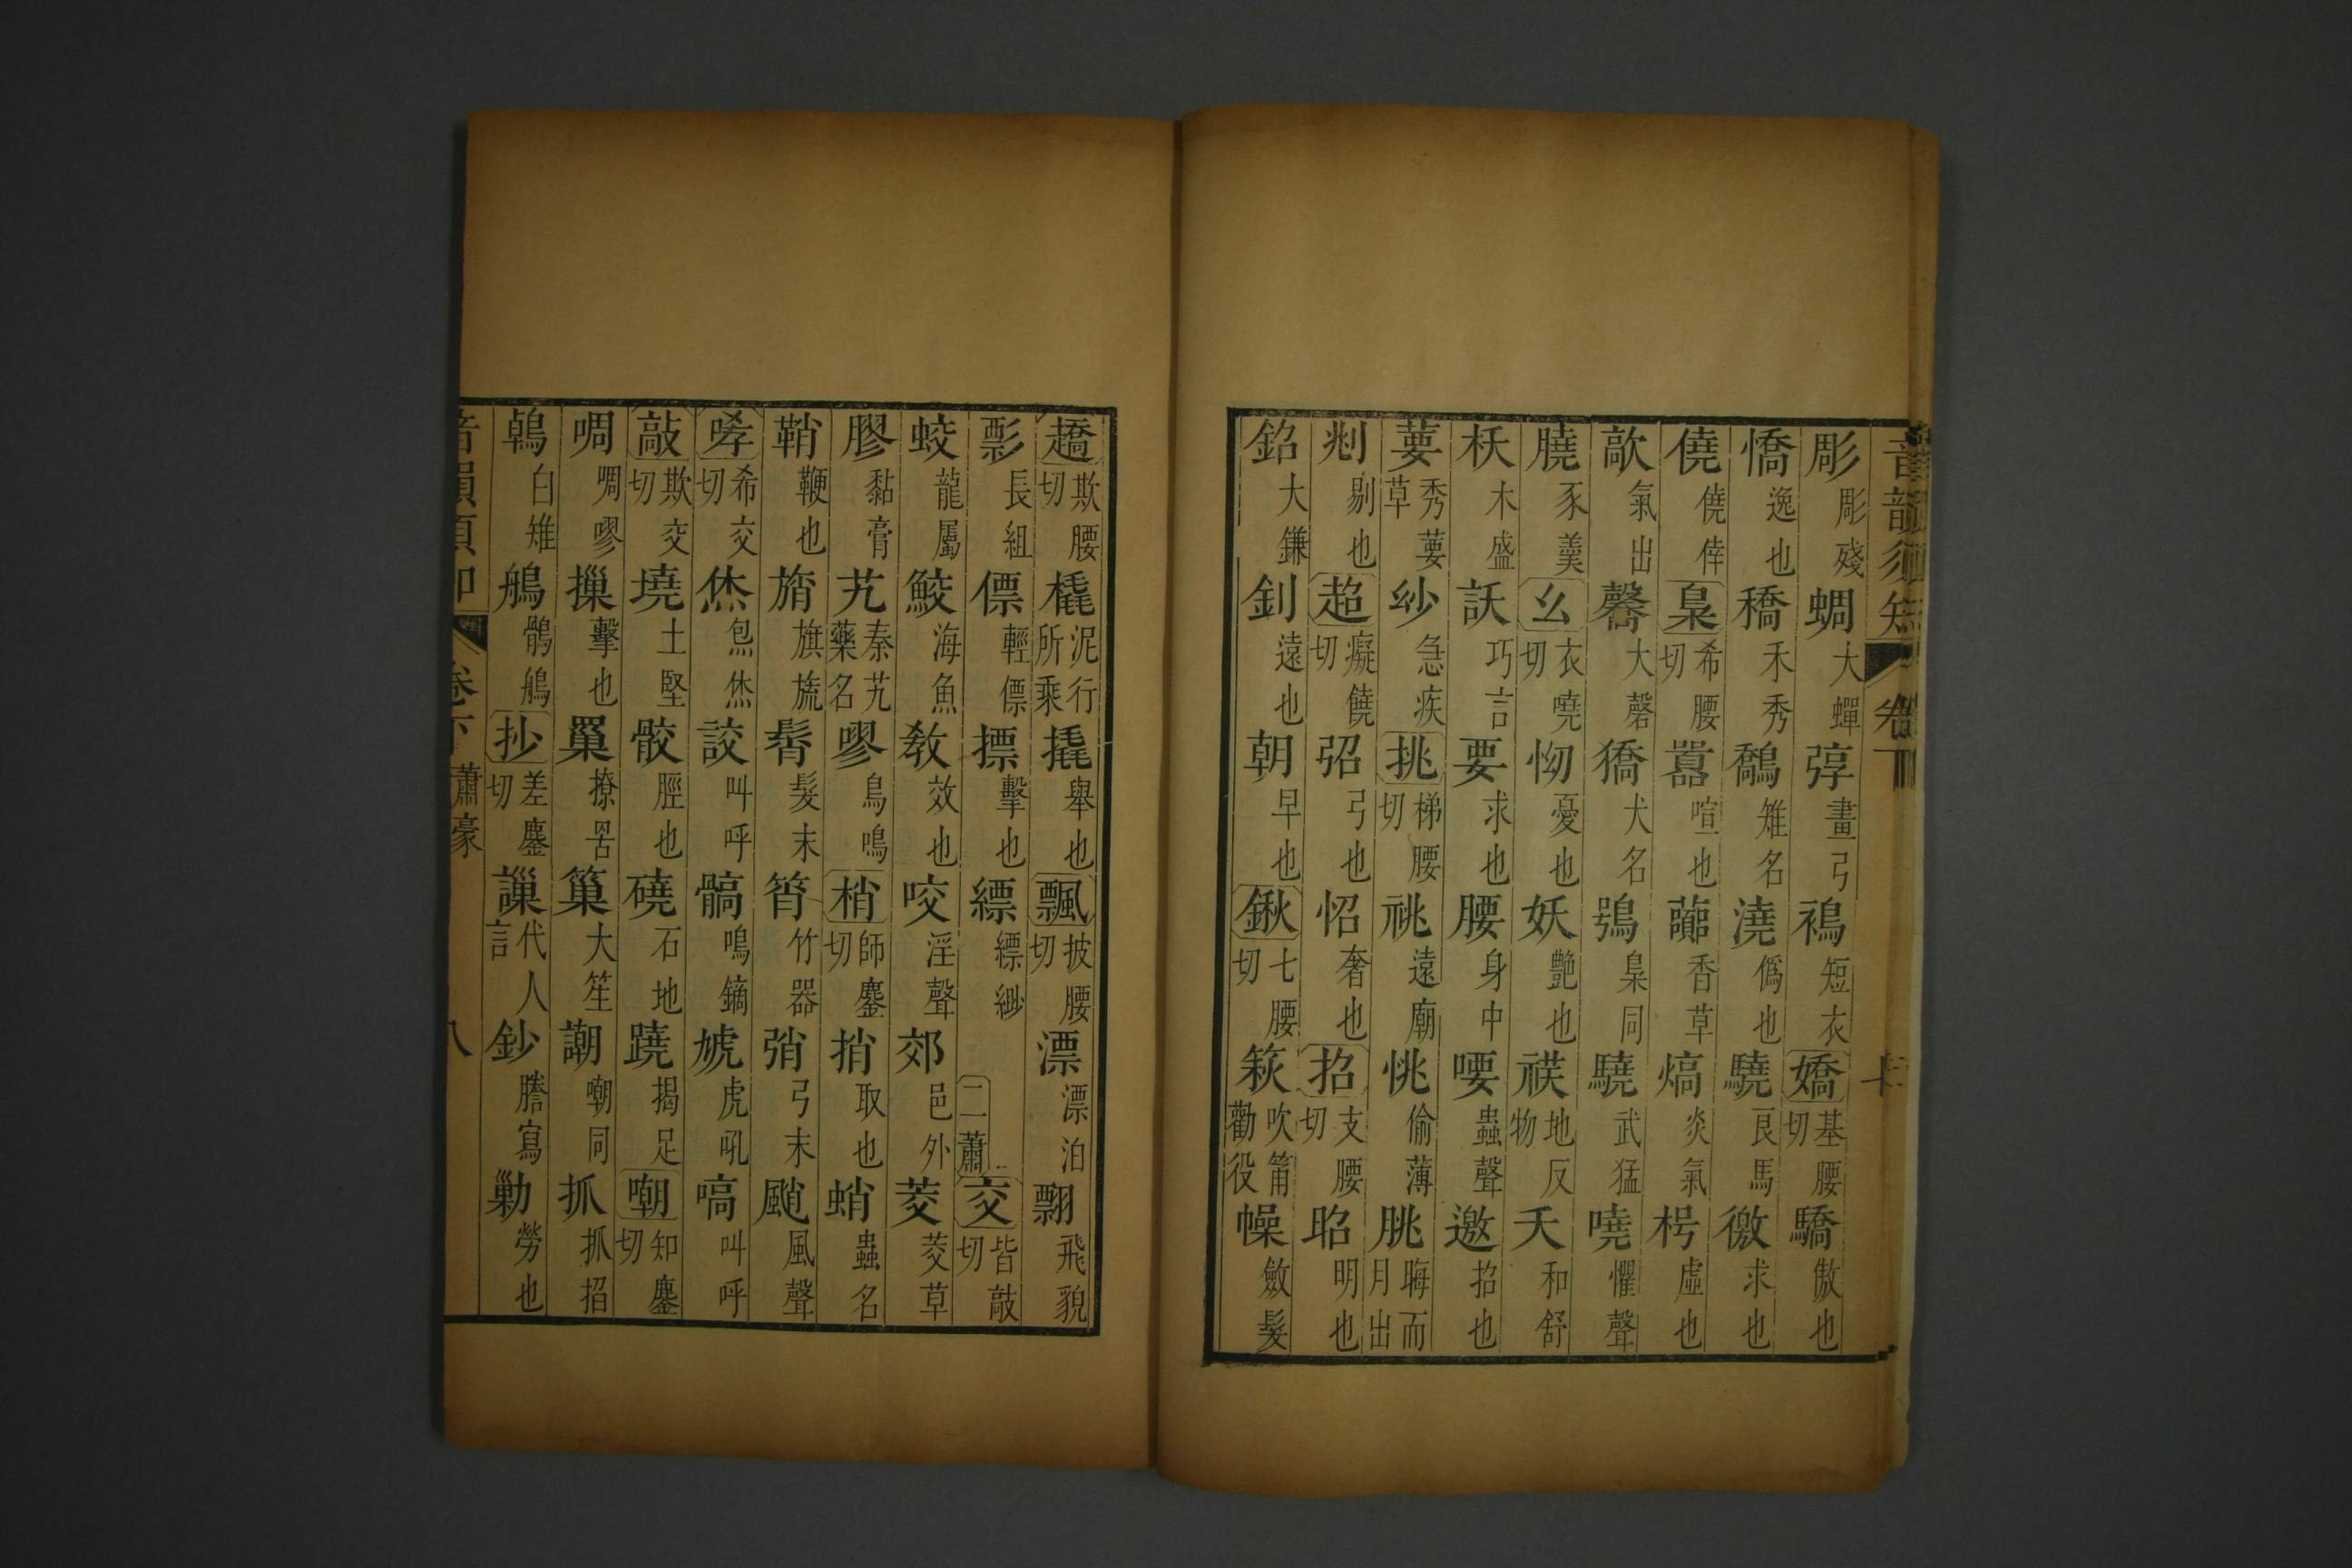 音韻須知 卷下
彫彫殘蜩大蟬弴畫弓裯短衣嬌基腰切驕傲也
憍逸也穚禾秀鷮雉名澆僞也驍良馬徼求也
僥僥倖梟希腰切囂喧也藃香草熇炎氣枵虛也
歊氣出毊大磬獢犬名鴞梟同驍武猛嘵懼聲
膮豕羹幺衣嘵切怮憂也妖艷也祅地反物夭和舒
枖木盛訞巧言要求也腰身中喓蟲聲邀招也
葽秀葽草紗急疾挑梯腰切祧遠廟恌偷薄朓晦而月出
剁剔也超癡饒切弨弓也怊奢也招支腰切昭明也
鉊大鎌釗遠也朝早也鍬七腰切篍吹筩勸役幧斂髮
趫欺腰切橇泥行所乘撬舉也飄披腰切漂漂泊翲飛貌
彯長組僄輕僄摽擊也縹縹緲二蕭交皆敲切
蛟龍屬鮫海魚教效也咬淫聲郊邑外茭茭草
膠黏膏艽秦艽藥名嘐鳥鳴梢師鏖切捎取也蛸蟲名
鞘鞭也旓旗旒髾髮末筲竹器弰弓末颵風聲
哮希交切烋炰烋詨叫呼髇鳴鏑虓虎吼嗃叫呼
敲欺交切墝土堅骹脛也磽石地蹺揭足嘲知鏖切
啁啁嘐摷擊也罺撩罟䈰大笙謿嘲同抓抓掐
鵫白雉鵃鶻鵃抄差鏖切謲代人言鈔謄寫勦勞也
音韻須知 卷下 蕭豪 八